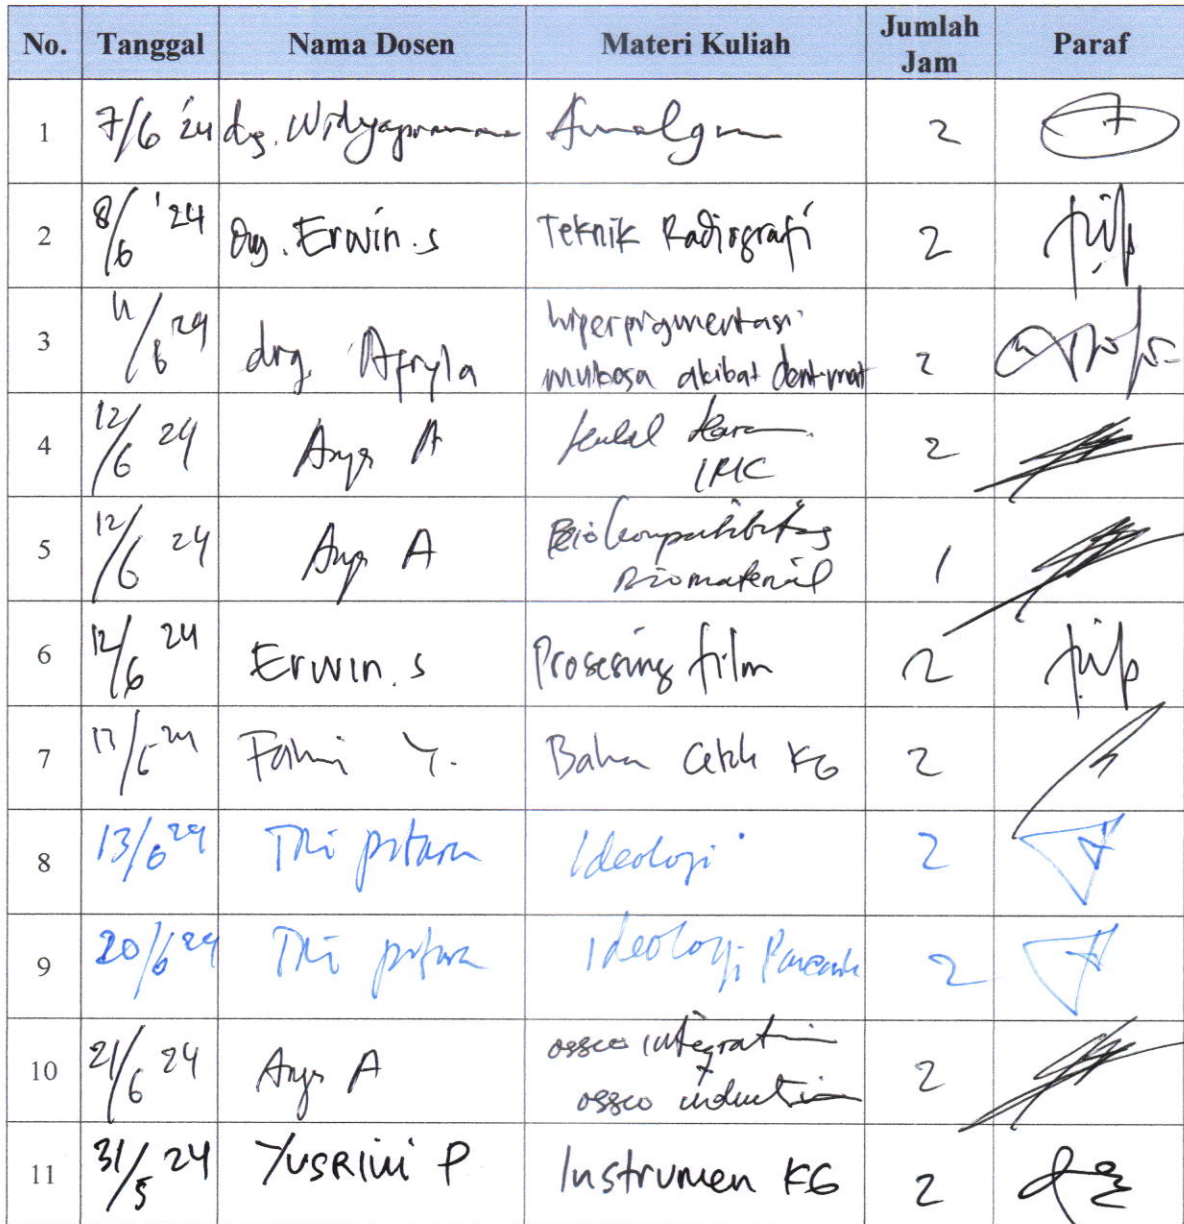 No. Tanggal Nama Dosen Materi Kuliah Jumlah Jam Paraf
1 7/6 '24 drg. Widyapramana Amalgam 2
2 8/6 '24 drg. Erwin.s Teknik Radiografi 2
3 11/6 24 drg. Afryla hiperpigmentasi
mukosa akibat dent.mat 2
4 12/6 24 A 2
IRK
5 12/6 24 A Biokompatibilitas
Biomaterial 1
6 12/6 24 Erwin.s Prosesing film 2
7 13/6 24 Fahmi Y. Bahan Cetak KG 2
8 13/6 24 Tri Ideologi 2
9 20/6 24 Tri Ideologi Pancasila 2
10 21/6 24 A osseo integration
osseo induction 2
11 31/5 24 Yusrini P Instrumen KG 2